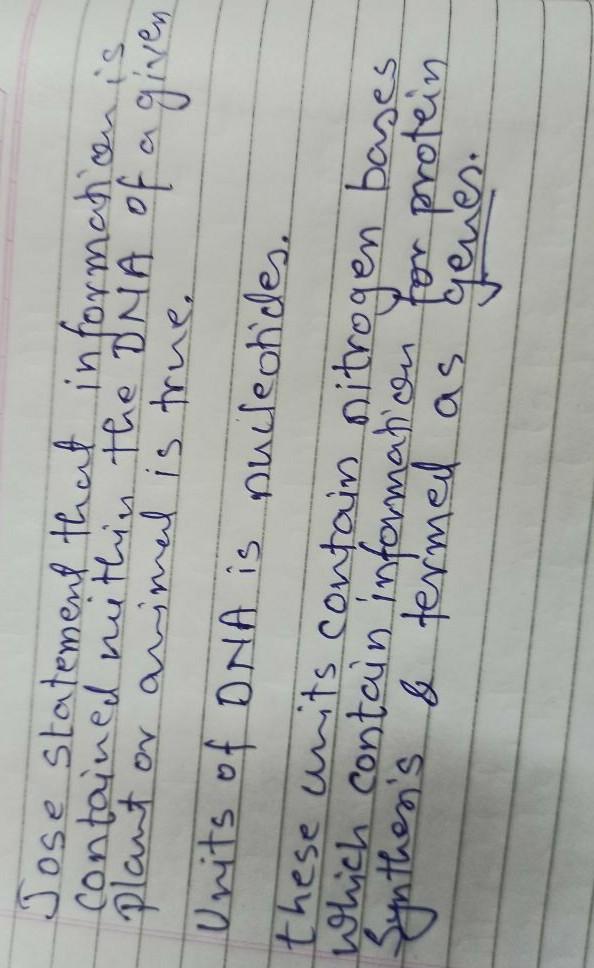 Jose statement that information is
contained within the DNA of a given
plant or animal is true.
Units of DNA is nucleotides.
these units contain nitrogen bases
which contain information for protein
Synthesis & termed as genes.